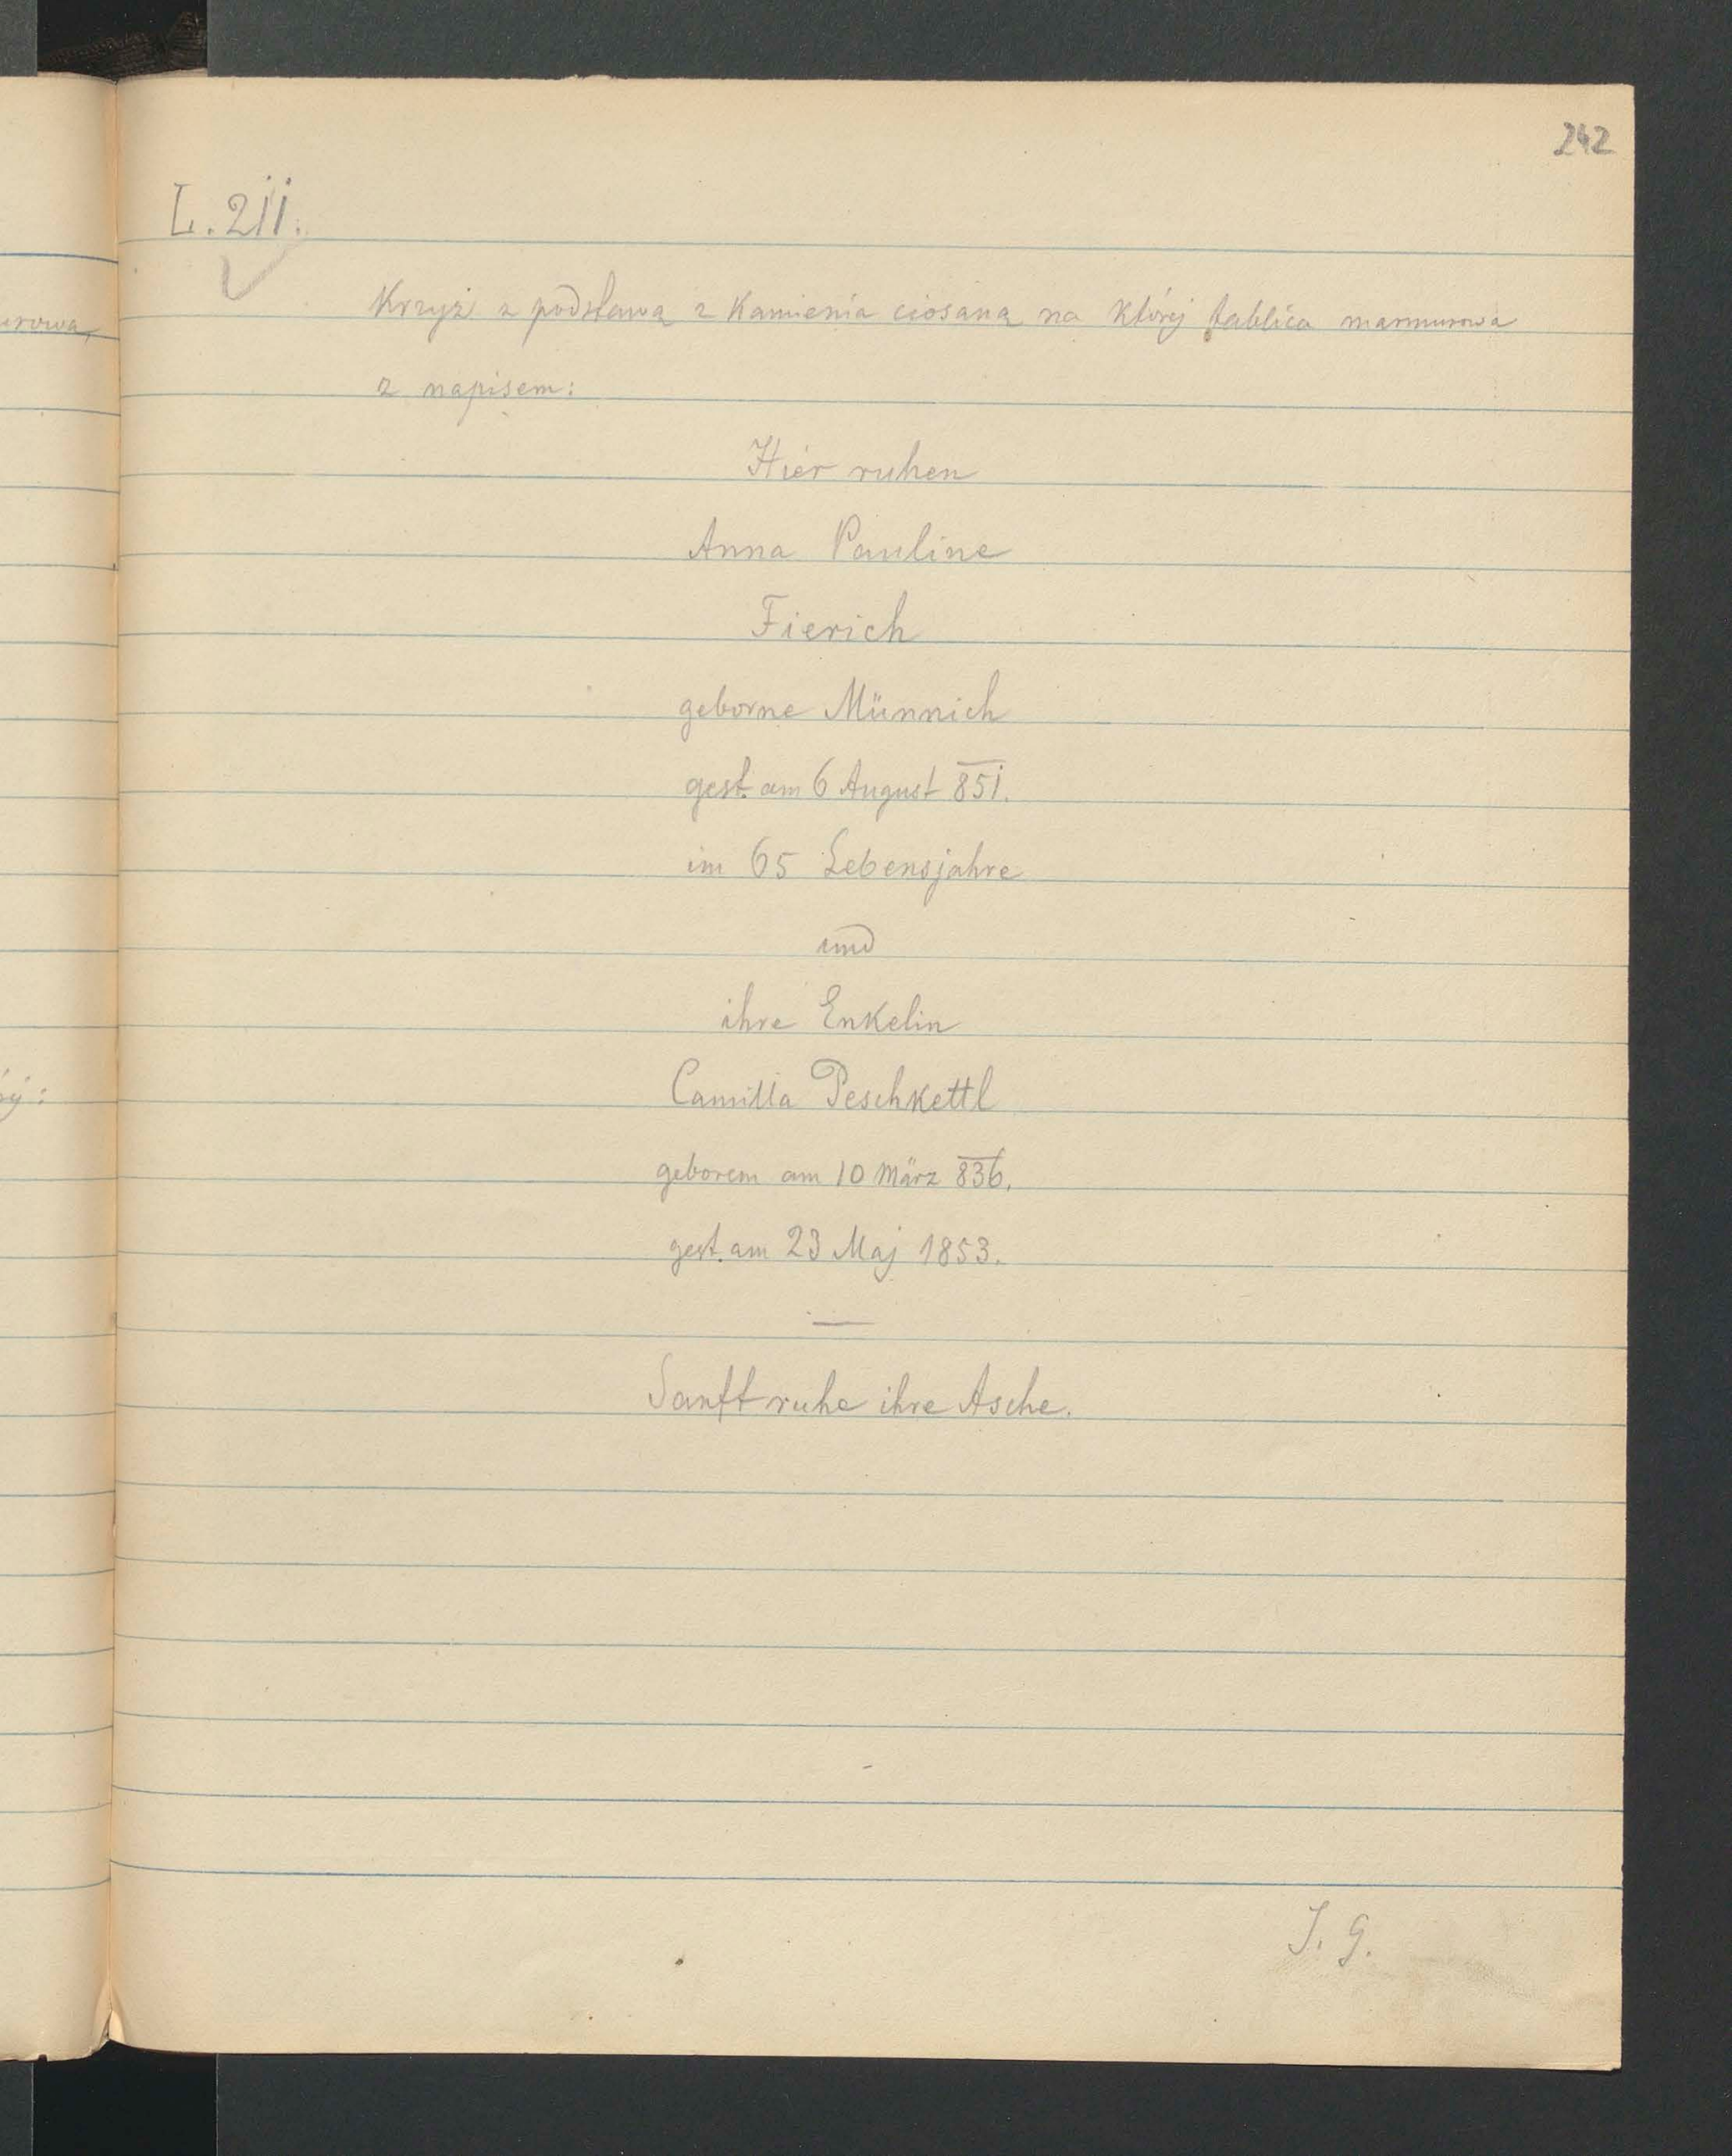 242
L. 211.
Krzyż z podstawą z Kamienia ciosaną na którj tablica marmurowa
z napisem:
Hier ruhen
Anna Pauline
Fierich
geborne Münnich
gest. am 6 August 851.
im 65 Lebensjahre
und
ihre Enkelin
Camilla Peschkettl
geboren am 10 März 836.
gest. am 23 Maj 1853.
—
Sanft ruhe ihre Asche.
J. G.